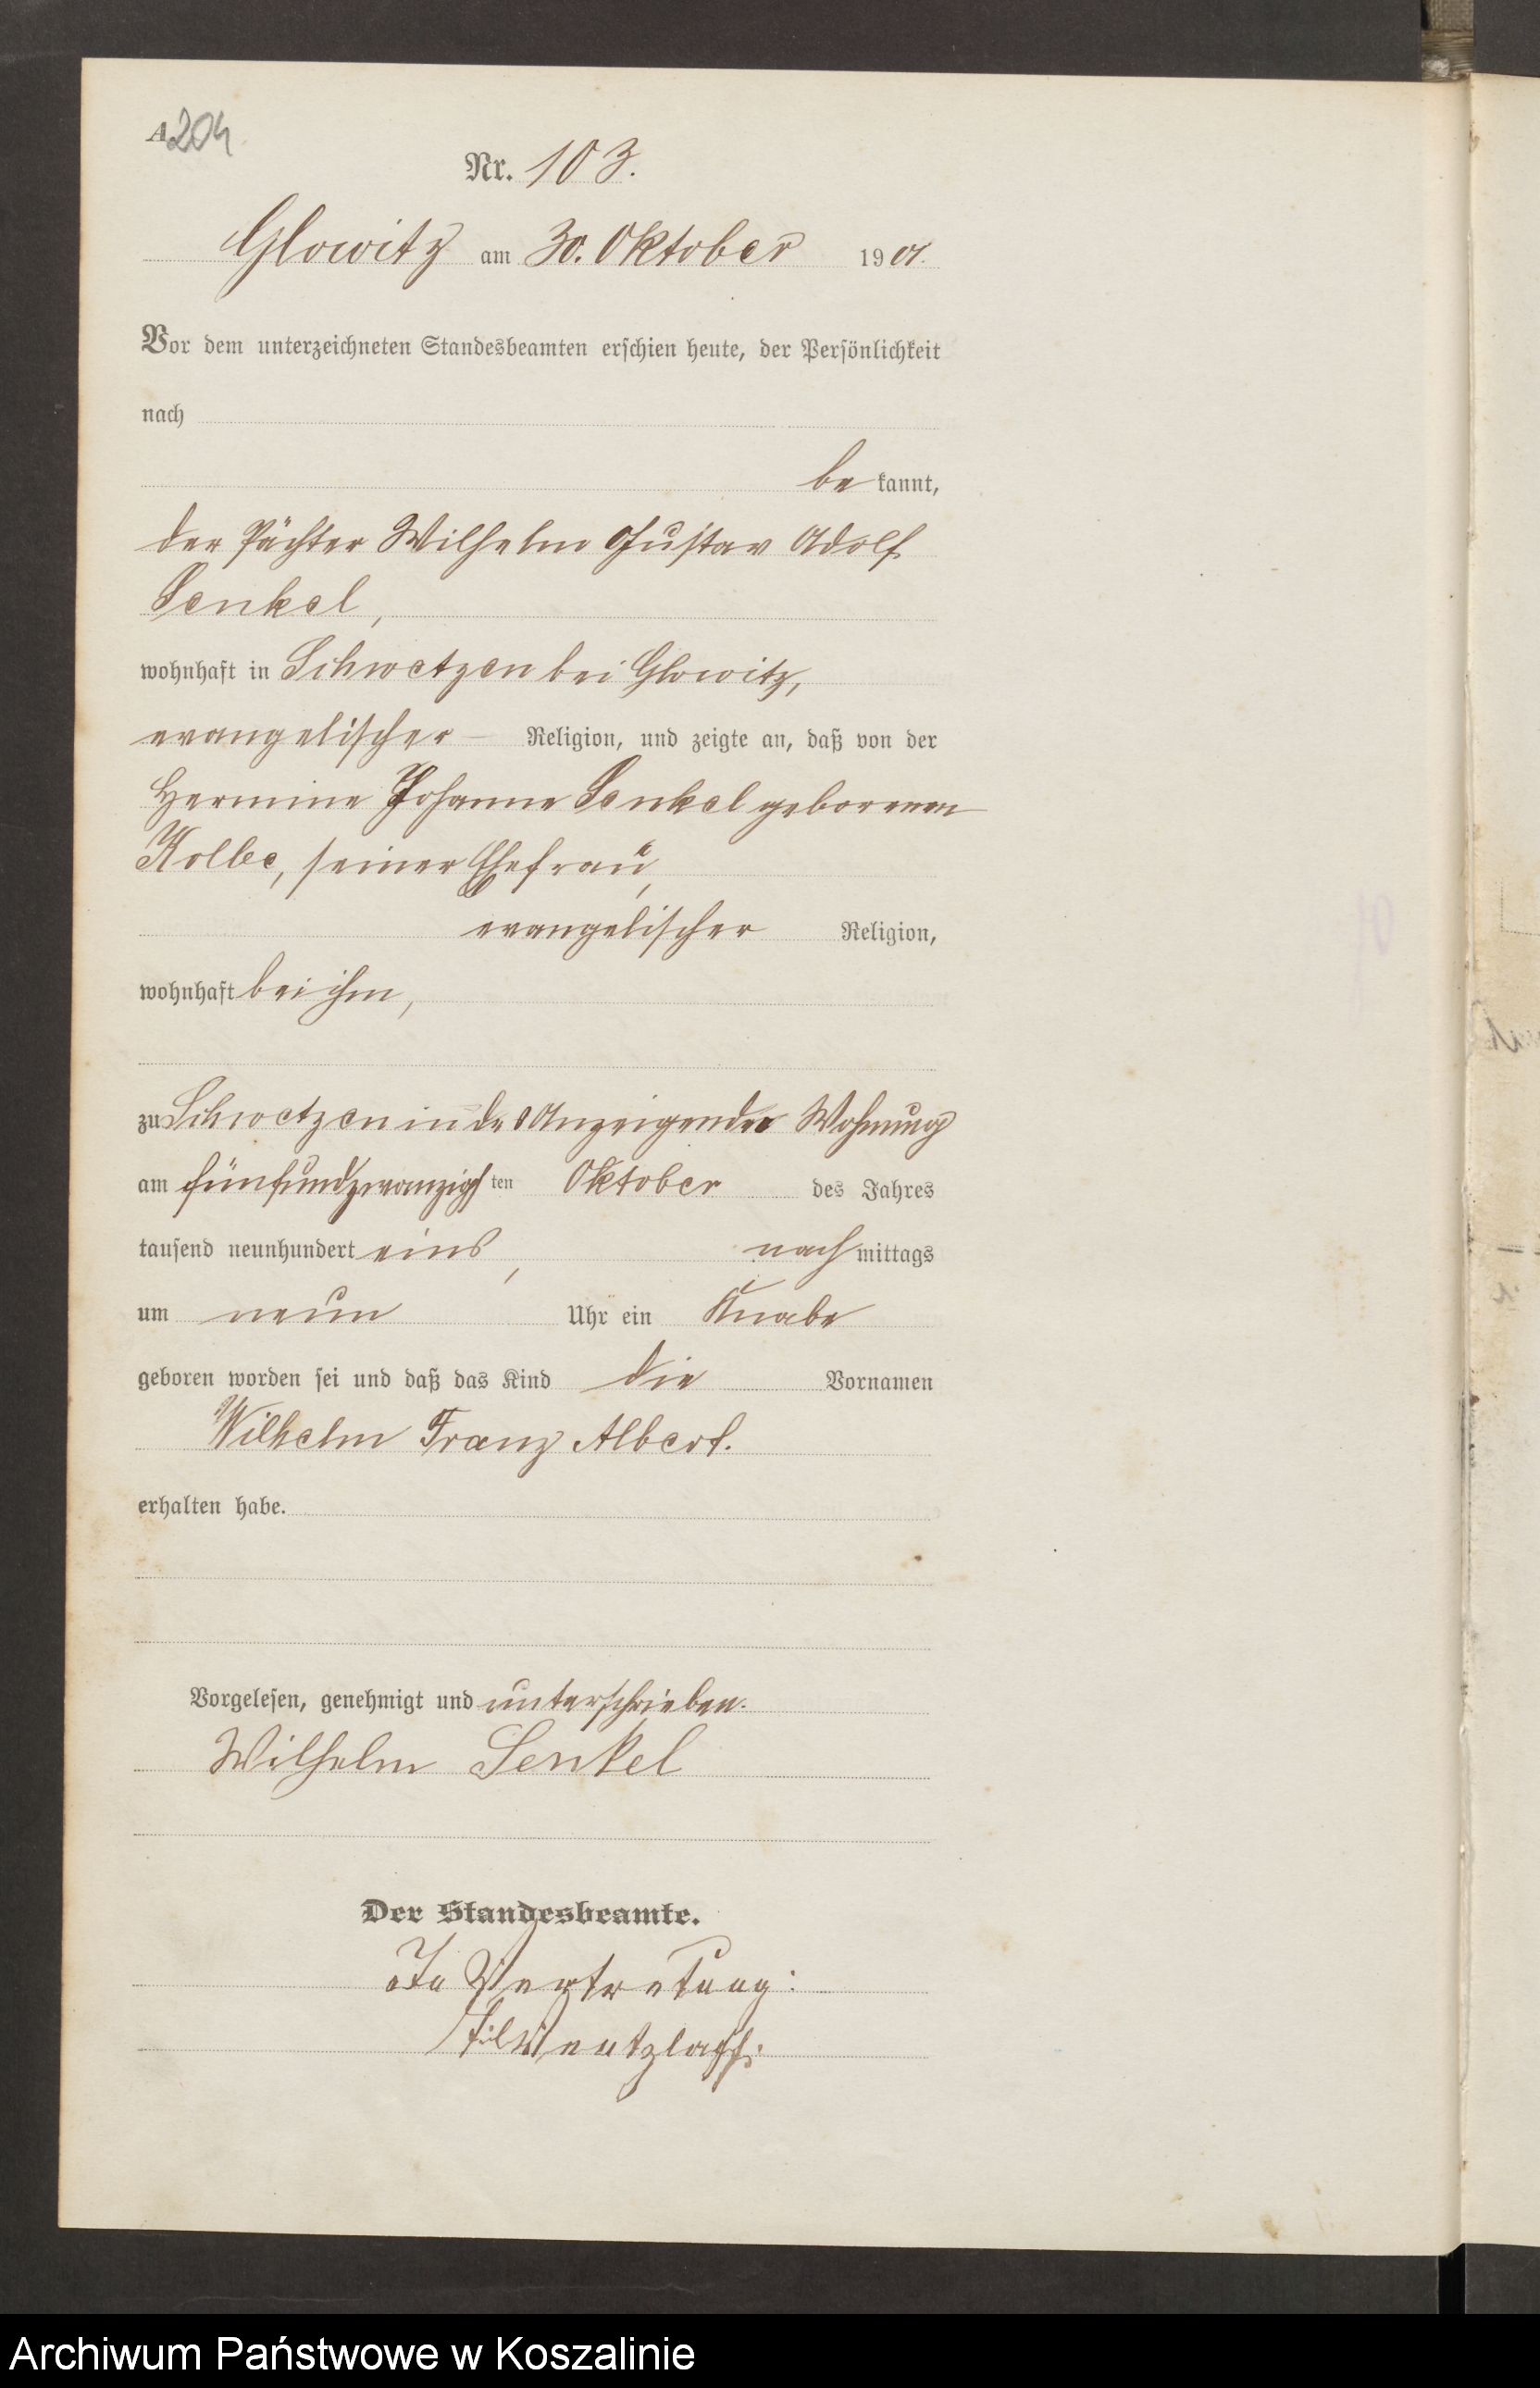 A.204
Nr. 103.
Glowitz am 30. Oktober 1901.
Vor dem unterzeichneten Standesbeamten erschien heute, der Persönlichkeit
nach
be kannt,
der Pächter Wilhelm Gustav Adolf
Senkel,
wohnhaft in Schwetzen bei Glowitz,
evangelischer Religion, und zeigte an, daß von der
Hermine Johanne Senkel geborenen
Kolbe, seiner Ehefrau,
evangelischer Religion,
wohnhaft bei ihm,
zu Schwetzen in des Anzeigenden Wohnung
am fünfundzwanzigsten Oktober des Jahres
tausend neunhundert eins, nach mittags
um neun Uhr ein Knabe
geboren worden sei und daß das Kind die Vornamen
Wilhelm Franz Albert.
erhalten habe.
Vorgelesen, genehmigt und unterschrieben.
Wilhelm Senkel
Der Standesbeamte.
In Vertretung:
Archiwum Państwowe w Koszalinie